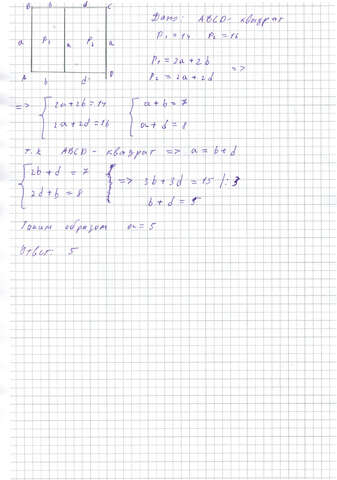 B b d C
a P₁ a P₂ a
A b d D
Дано: ABCD - квадрат
P₁ = 14 P₂ = 16
P₁ = 2a + 2b
P₂ = 2a + 2d =>
=> { 2a + 2b = 14 { a + b = 7
2a + 2d = 16 a + d = 8
т.к ABCD - квадрат => a = b + d
{ 2b + d = 7 } => 3b + 3d = 15 /: 3
2d + b = 8 b + d = 5
Таким образом a = 5
Ответ 5